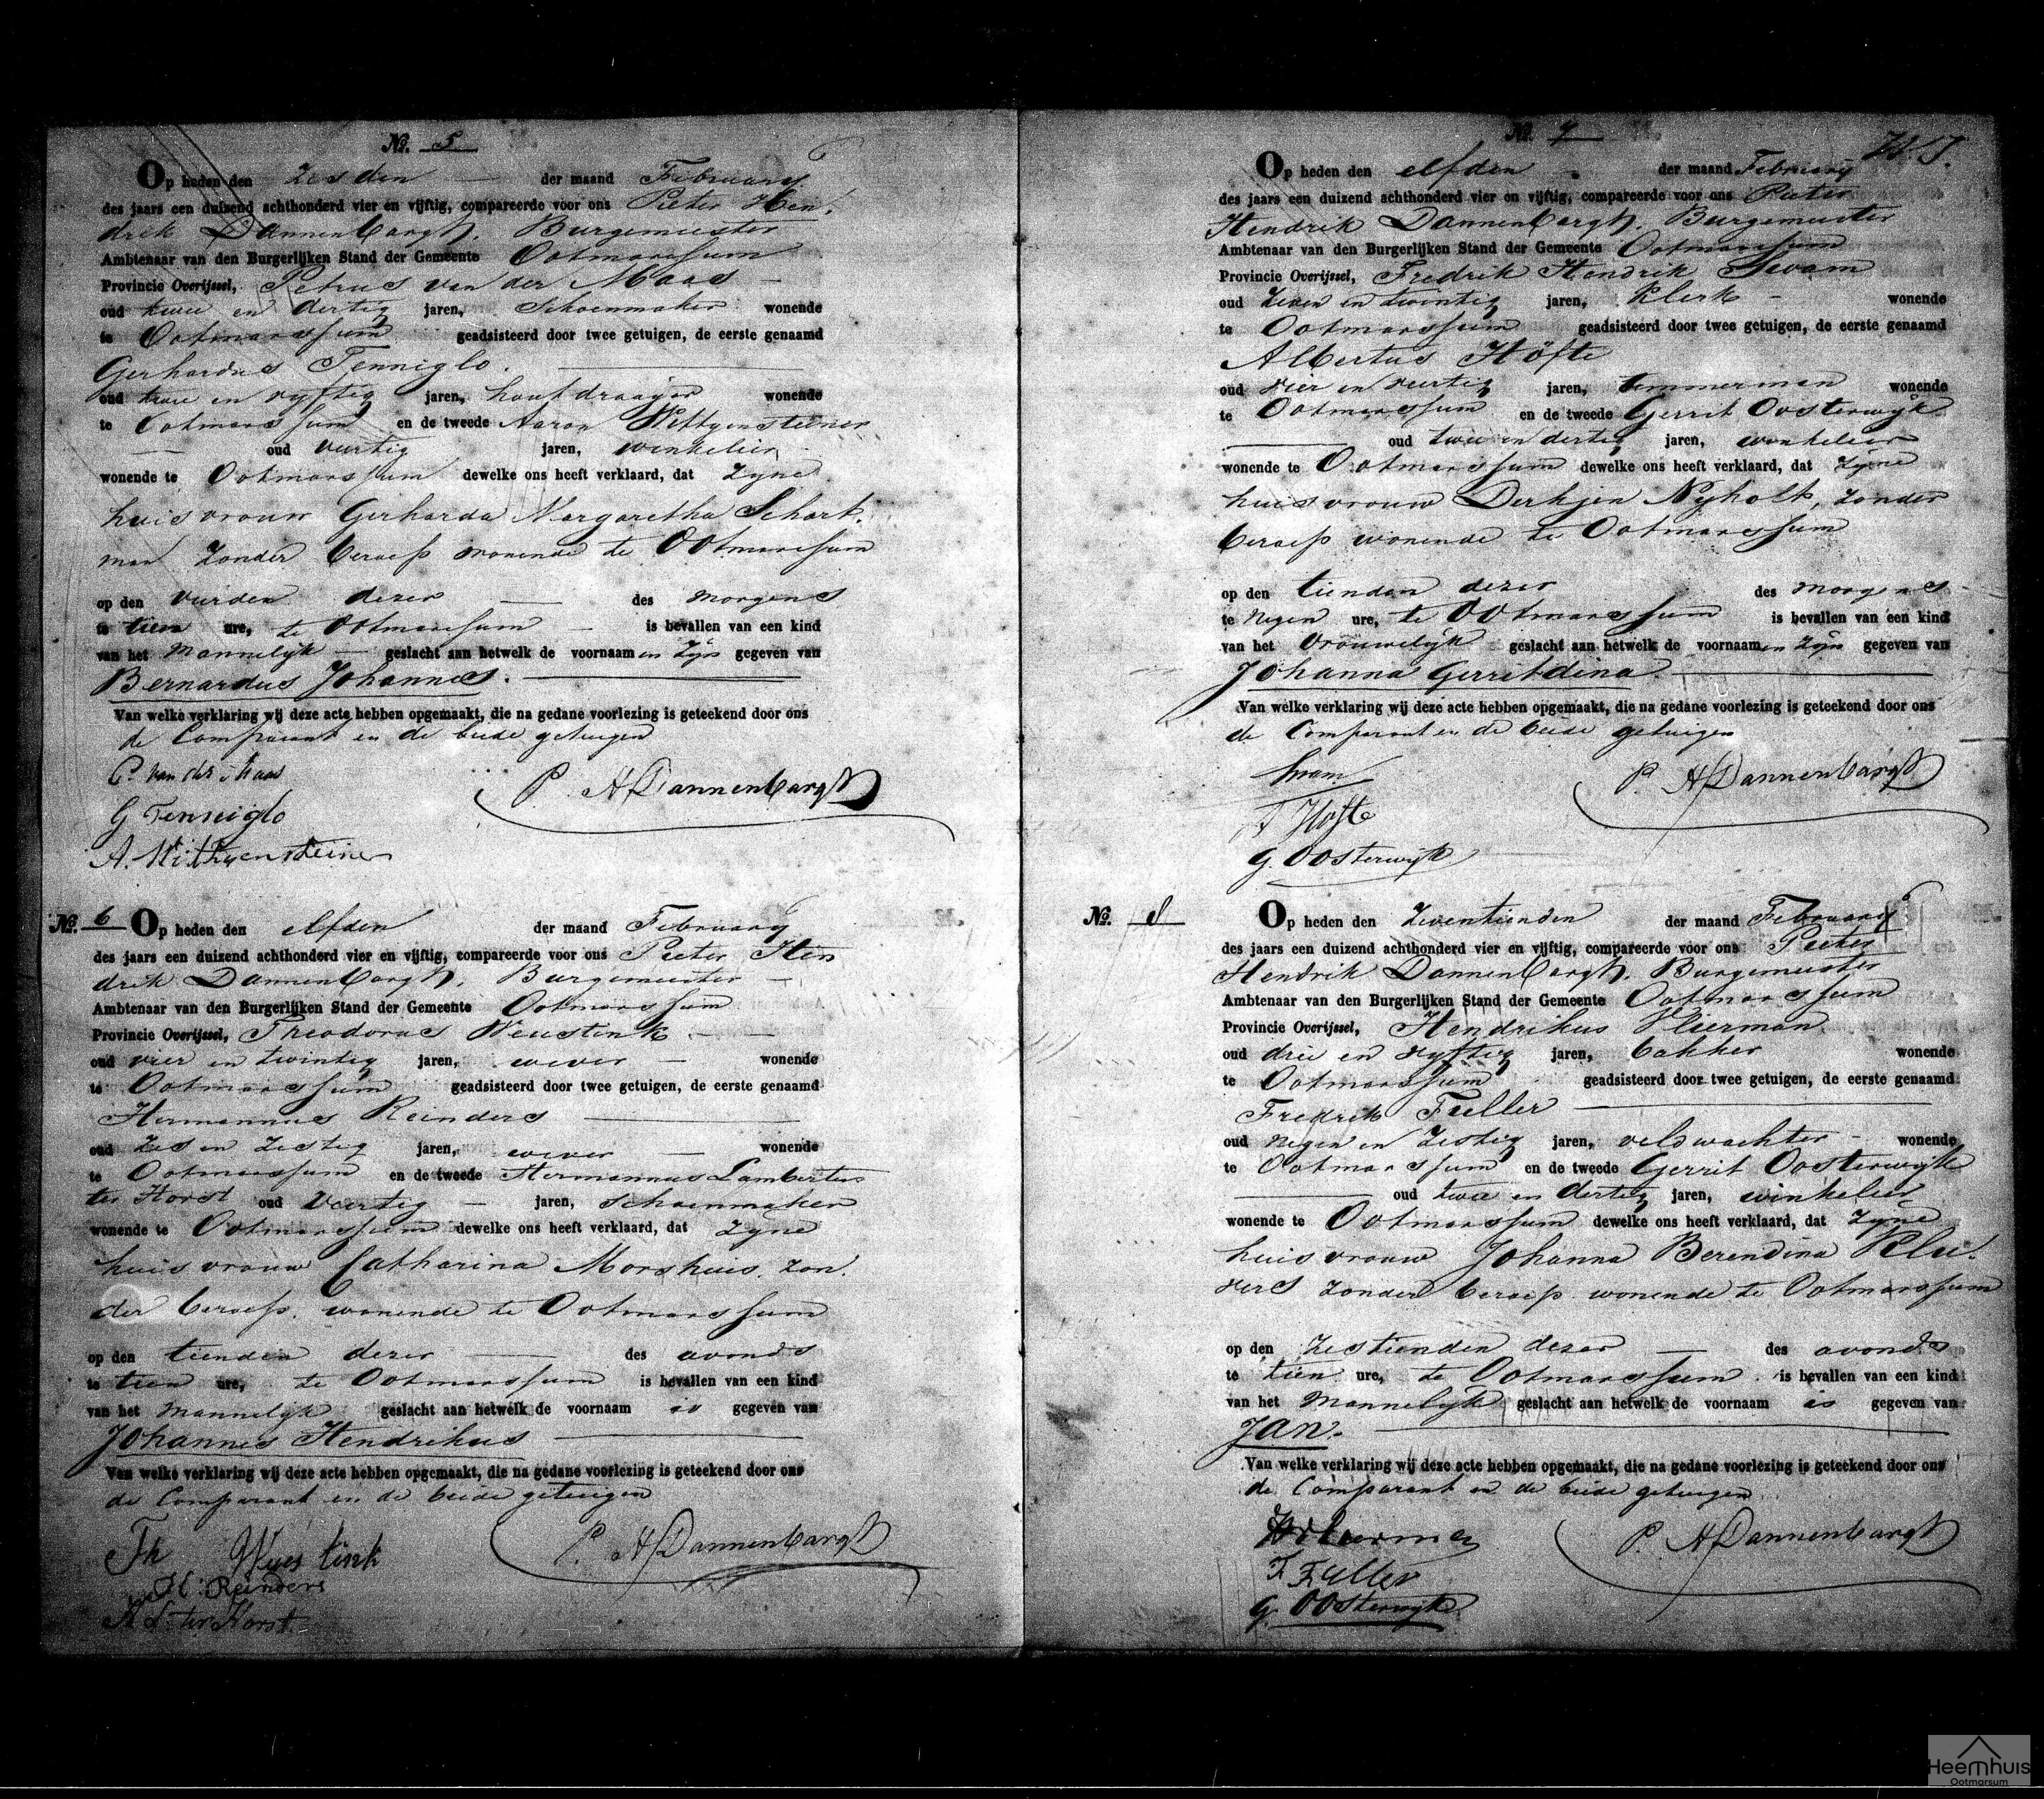 No. 5
Op heden den zesden der maand February
des jaars een duizend achthonderd vier en vijftig, compareerde voor ons Pieter Hen-
drik Dannenbargh, Burgemeester
Ambtenaar van den Burgerlijken Stand der Gemeente Ootmarssum
Provincie Overijssel, Petrus van der Maas
oud twee en dertig jaren, Schoenmaker wonende
te Ootmarssum geadsisteerd door twee getuigen, de eerste genaamd
Gerhardus Tenniglo.
oud twee en vyftig jaren, houtdraayer wonende
te Ootmarssum en de tweede Aaron Wittgensteiner
oud veertig jaren, winkelier
wonende te Ootmarssum dewelke ons heeft verklaard, dat zyne
huisvrouw Gerharda Margaretha Schart-
man zonder beroep wonende te Ootmarssum
op den vierden dezer des morgens
te tien ure, te Ootmarssum is bevallen van een kind
van het Mannelyk geslacht aan hetwelk de voornaamen zyn gegeven van
Bernardus Johannes.
Van welke verklaring wij deze acte hebben opgemaakt, die na gedane voorlezing is geteekend door ons
de Comparant en de beide getuigen
P. van der Maas
P. H Dannenbargh
G Tenniglo
A. Wittgensteiner
No. 6 Op heden den elfden der maand February
des jaars een duizend achthonderd vier en vijftig, compareerde voor ons Pieter Hen
drik Dannenbargh, Burgemeester
Ambtenaar van den Burgerlijken Stand der Gemeente Ootmarssum
Provincie Overijssel, Theodorus Weustink
oud vier en twintig jaren, wever wonende
te Ootmarssum geadsisteerd door twee getuigen, de eerste genaamd
Hermannus Reinders
oud zes en zestig jaren, wever wonende
te Ootmarssum en de tweede Hermannus Lambertus
ter Horst oud veertig jaren, schoenmaker
wonende te Ootmarssum dewelke ons heeft verklaard, dat zyne
huisvrouw Catharina Morshuis, zon-
der beroep, wonende te Ootmarssum
op den tienden dezer des avonds
te tien ure, te Ootmarssum is bevallen van een kind
van het Mannelyk geslacht aan hetwelk de voornaam is gegeven van
Johannes Hendrikus
Van welke verklaring wij deze acte hebben opgemaakt, die na gedane voorlezing is geteekend door ons
de Comparant en de beide getuigen
Th Wuestink
P. H Dannenbargh
H: Reinders
H L: ter Horst
No. 7
Op heden den elfden der maand February
des jaars een duizend achthonderd vier en vijftig, compareerde voor ons Pieter
Hendrik Dannenbargh, Burgemeester
Ambtenaar van den Burgerlijken Stand der Gemeente Ootmarssum
Provincie Overijssel, Fredrik Hendrik Swam
oud zeven en twintig jaren, klerk wonende
te Ootmarssum geadsisteerd door twee getuigen, de eerste genaamd
Albertus Höfte
oud vier en veertig jaren, timmerman wonende
te Ootmarssum en de tweede Gerrit Oosterwyk
oud twee en dertig jaren, winkelier
wonende te Ootmarssum dewelke ons heeft verklaard, dat zyne
huisvrouw Derkjen Nyholt, zonder
beroep wonende te Ootmarssum
op den tienden dezer des morgens
te negen ure, te Ootmarssum is bevallen van een kind
van het vrouwelyk geslacht aan hetwelk de voornaamen zyn gegeven van
Johanna Gerritdina.
Van welke verklaring wij deze acte hebben opgemaakt, die na gedane voorlezing is geteekend door ons
de Comparant en de beide getuigen
Swam
P. H Dannenbargh
Hofte
G. Oosterwyk
No. 8 Op heden den zeventienden der maand February
des jaars een duizend achthonderd vier en vijftig, compareerde voor ons Pieter
Hendrik Dannenbargh, Burgemeester
Ambtenaar van den Burgerlijken Stand der Gemeente Ootmarssum
Provincie Overijssel, Hendrikus Vlierman
oud drie en vyftig jaren, bakker wonende
te Ootmarssum geadsisteerd door twee getuigen, de eerste genaamd
Fredrik Fuller
oud negen en zestig jaren, veldwachter wonende
te Ootmarssum en de tweede Gerrit Oosterwyk
oud twee en dertig jaren, winkelier
wonende te Ootmarssum dewelke ons heeft verklaard, dat zyne
huisvrouw Johanna Berendina Klu-
vers zonder beroep wonende te Ootmarssum
op den zestienden dezer des avonds
te tien ure, te Ootmarssum is bevallen van een kind
van het Mannelyk geslacht aan hetwelk de voornaam is gegeven van
Jan.
Van welke verklaring wij deze acte hebben opgemaakt, die na gedane voorlezing is geteekend door ons
de Comparant en de beide getuigen
P. H Dannenbargh
F Fuller
G. Oosterwyk
Heemhuis
Ootmarsum